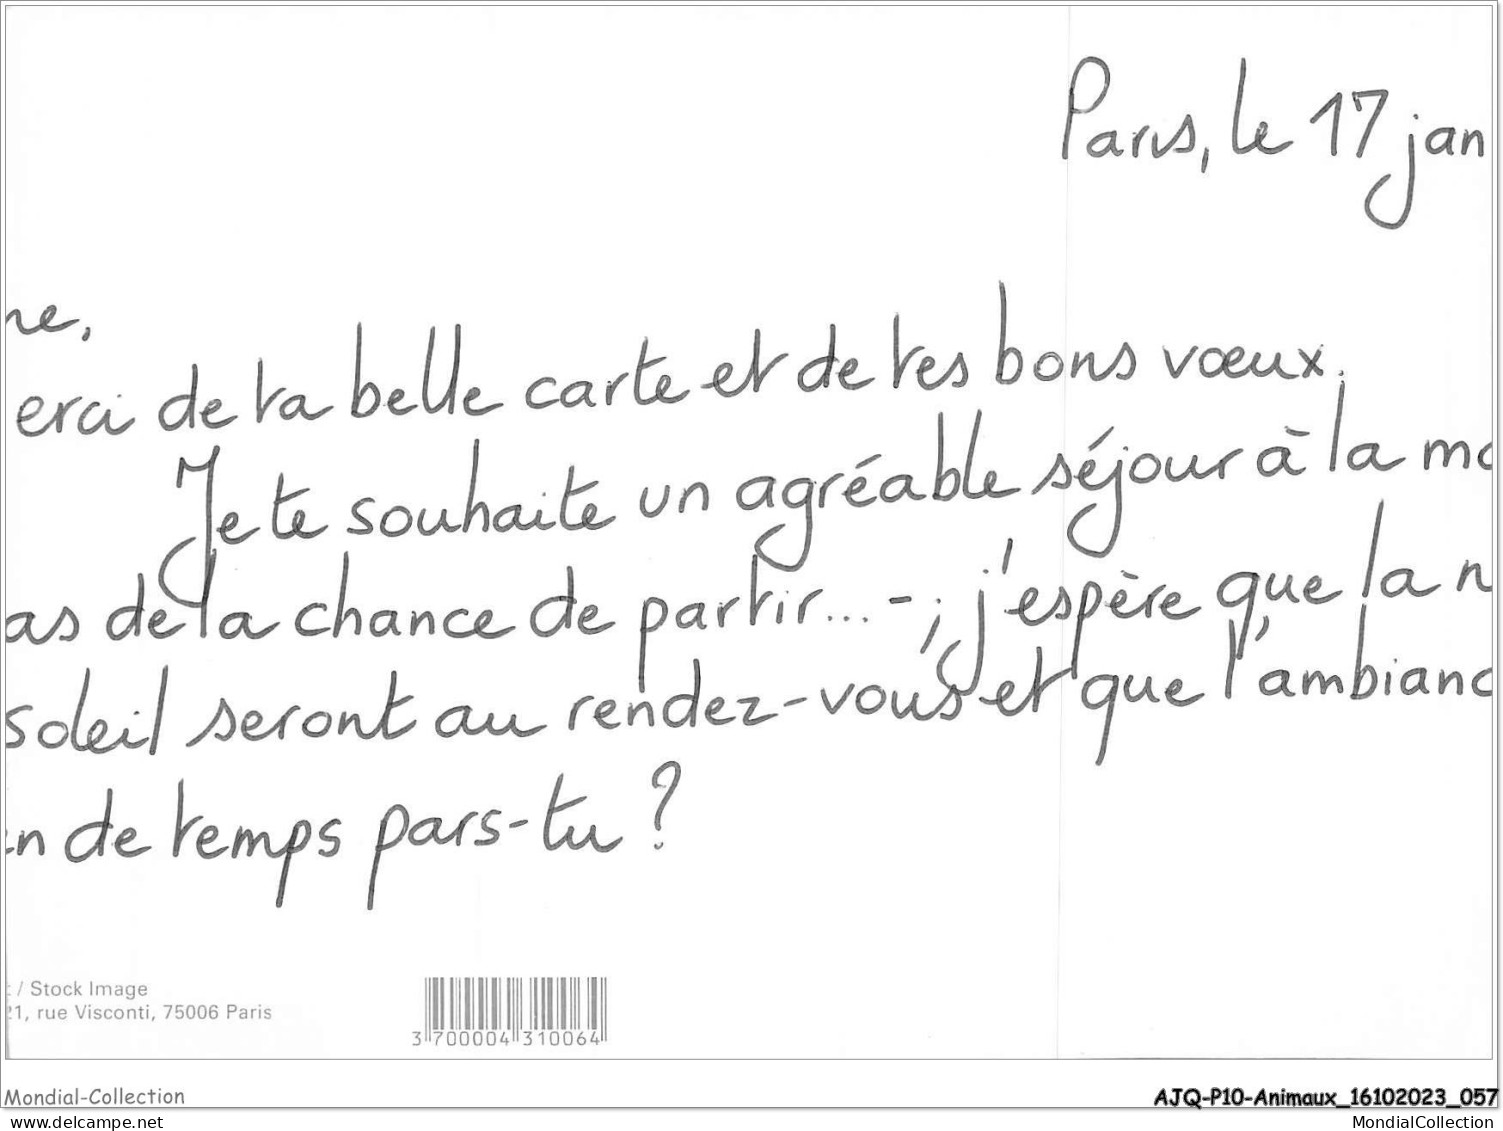 Paris, le 17 jan
ne,
erci de ta belle carte et de tes bons vœux.
Je te souhaite un agréable séjour à la mo
as de la chance de partir... - ; j'espère que la n
soleil seront au rendez-vous et que l'ambianc
en de temps pars-tu ?
: / Stock Image
21, rue Visconti, 75006 Paris
3 700004 310064
Mondial-Collection
AJQ-P10-Animaux_16102023_057
www.delcampe.net
MondialCollection